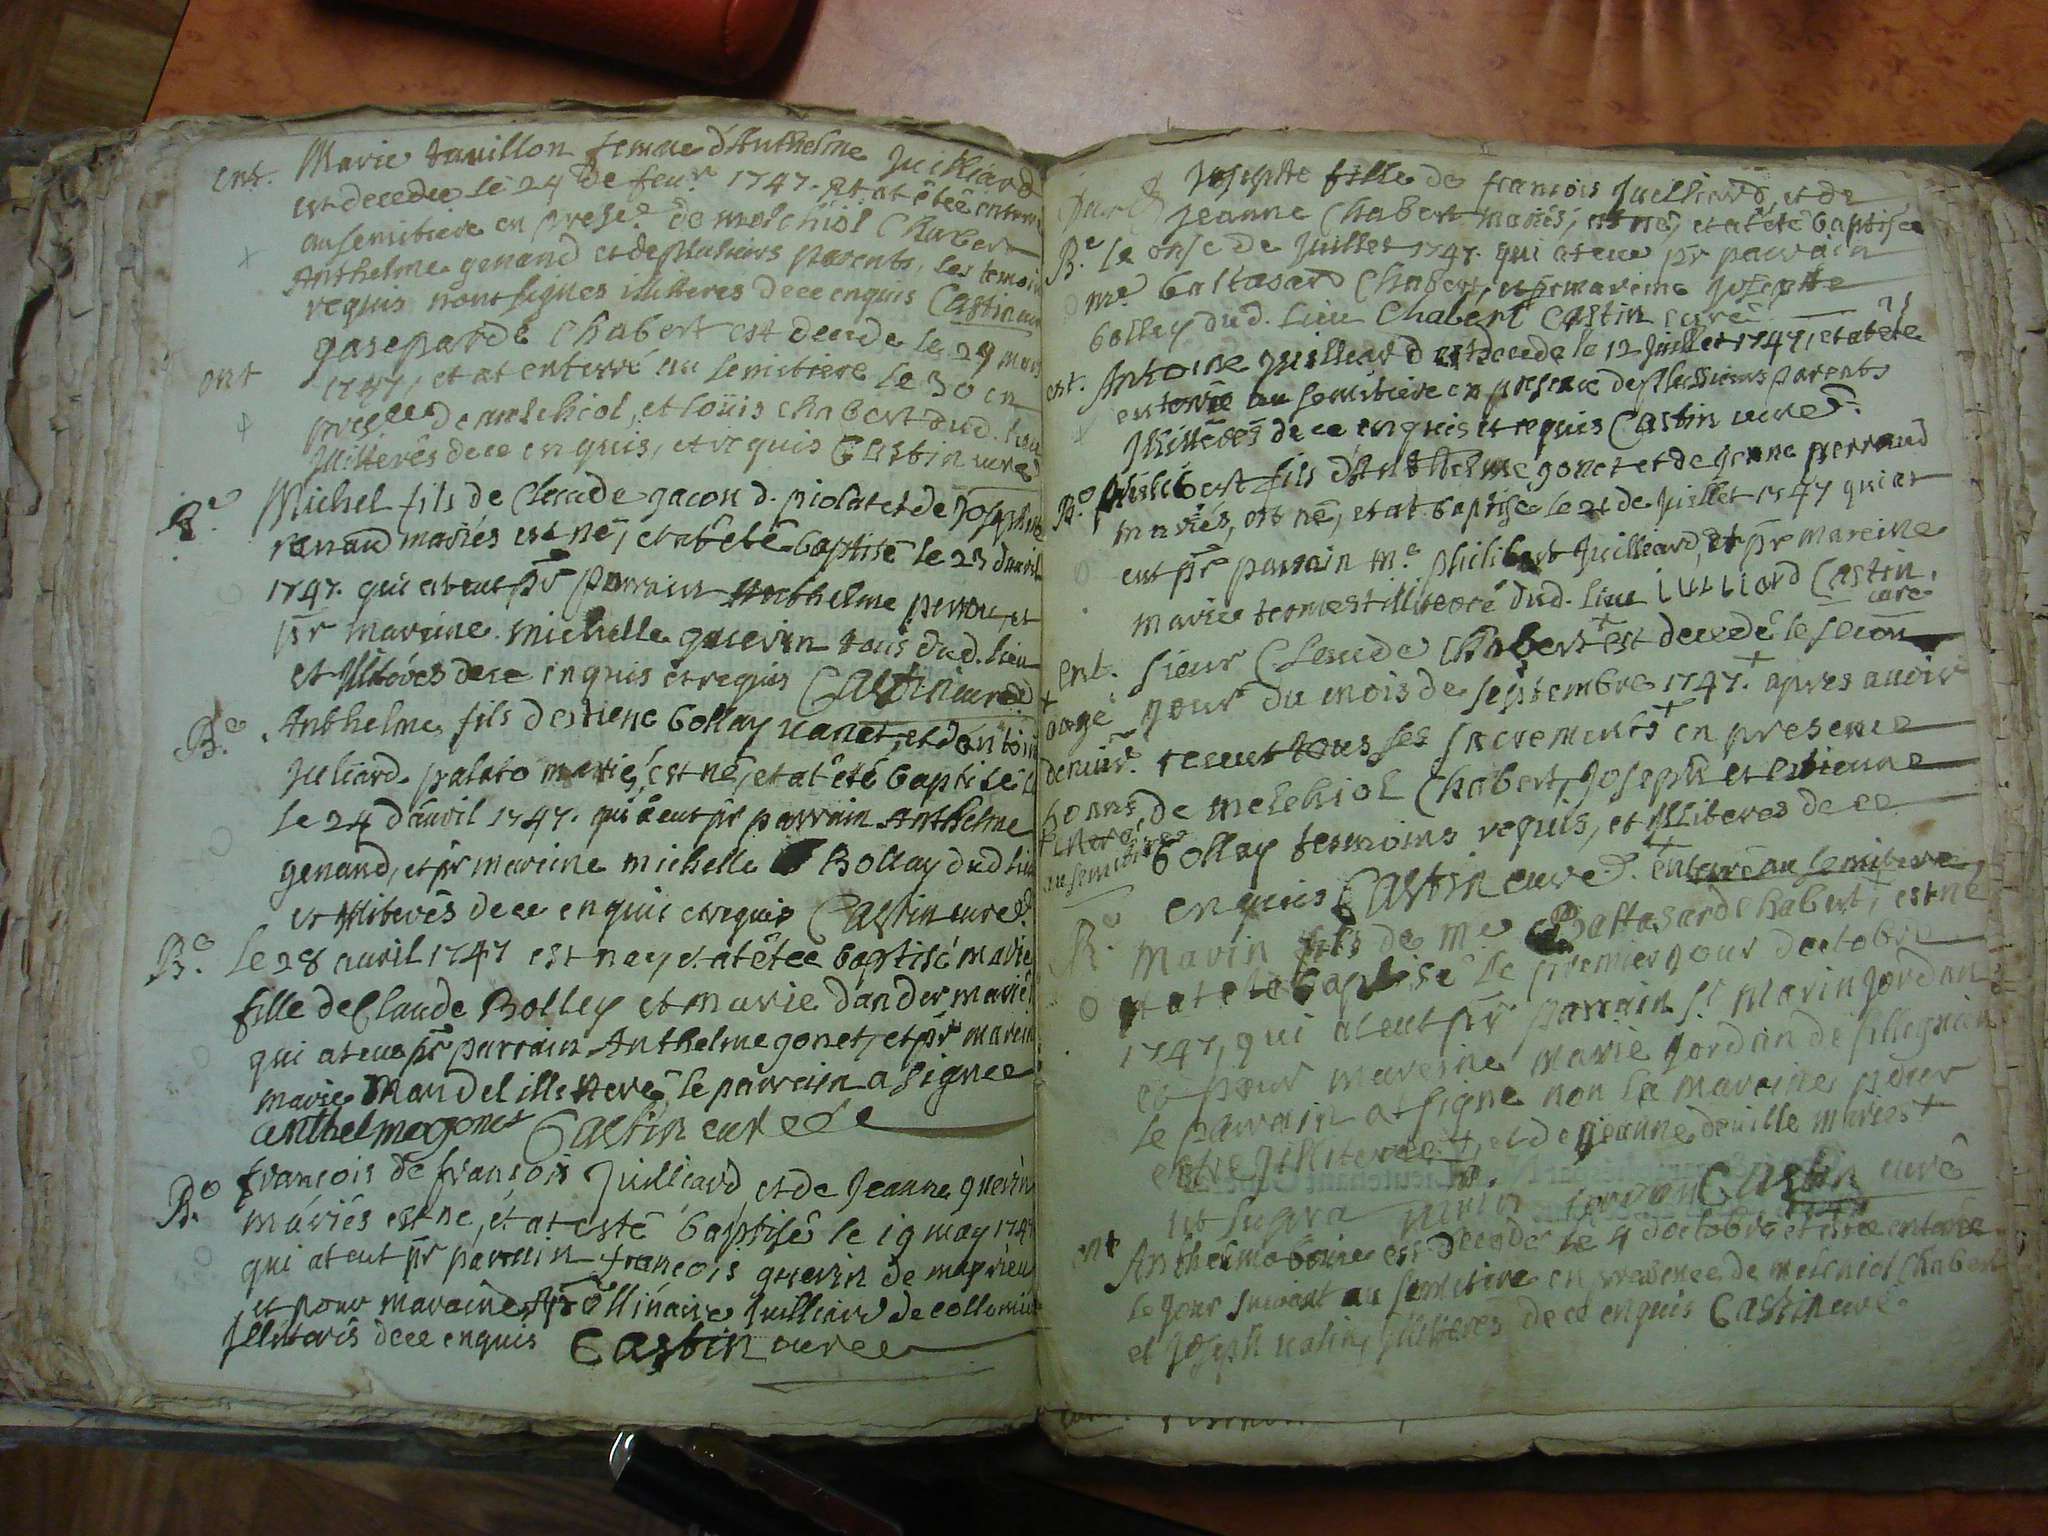 ent. Marie femme d'Anthelme Juilliard
est decedee le 24 de feur. 1747. et at étée enterré
au semitiere en prese. de melchiol Chabert
Anthelme genand et de plusieurs parents, les temoins
requis non signes illiteres de ce enquis Castin curé
ent gasepard Chabert est decede le 29 mars
1747, et at enterré au semitiere le 30 en
de melchiol, et loüis chabert dud. lieu
Illiterés de ce enquis, et requis Castin curé
B.e Michel fils de Claude gacon d. piolat et de Josephte
renaud mariés est né, et at êté baptisé le 23 d'avril
1747. qui at eut pr parrain Anthelme perrou, et
pr mareine michelle guerin tous dud. lieu
et Illiterés de ce enquis et requis Castin curé
B.e Anthelme fils d'estiene bollay uanet, et d'antoin
Juliard palato mariés, est né, et at êté baptisé
le 24 d'auril 1747. qui a eut pr parrain Anthelme
genand, et pr mareine michelle Bollay dud lieu
et illiterés de ce enquis et requis Castin curé
B.e Le 28 auril 1747 est ney et at étée baptisé marie
fille de Claude Bolley et marie dander mariés
qui at eue pr parrain Anthelme gonet, et pr marein
marie Mandel illiteré, le parrain a signee
anthelme gonet Castin curé
B.e françois de françois Juilliard et de Jeanne guerin
mariés est ne, et at esté baptisé le 19 may 1747
qui at eut pr parrain françois guerin de
et pour maraine Apollinaire Juilliard de collomieu
Illiterés de ce enquis Castin curé
Josephte fille de françois Juilliard, et de
Jeanne Chabert mariés, est né, et at êté baptisée
B.e le onse de Juillet 1747. qui at eue pr parrain
me. baltasard Chabert, et pr mareine Josephte
bollay dud. lieu Chabert Castin curé
ent. Antoine Juilliard est decede le 12 Juillet 1747, et at êté
enterré au semitiere en presence de plusieurs parents
Illiterés de ce enquis et requis Castin curé
B.e philibert fils d'Anthelme gonet et de Jeane perraud
mariés, est né, et at baptise le 21 de Juillet 1747 qui at
eut pr parrain me. philibert Juilliard, et pr mareine
marie termest illiteré dud. lieu Iulliard Castin
curé
ent. sieur Claude Chabert est decedé le secon
agé jour du mois de septembre 1747. apres auoir
denuir. receut tous les sacrements en presence
60 ans, de melchiol Chabert, Joseph et estienne
enterré
au semitiere bollay temoins requis, et Illiteres de ce
enquis Castin curé. enterré au semitiere
B.e Marin fils de me. Baltasard chabert, est né
et at eté baptisé le premier jour d'octobre
1747, qui at eut pr parrain sr. Marin Jordan
et pour mareine marie Jordan de sillignieu
le parrain at signe non la maraine pour
estre illiteree, et de jeanne deuille mariés
ut supra Castin curé
ent Anthelme est decede le 4 d'octobre et ete enterré
le jour suivant au semitiere en presence de melchiol Chabert
et Joseph ualin, Illiteres de ce enquis Castin curé